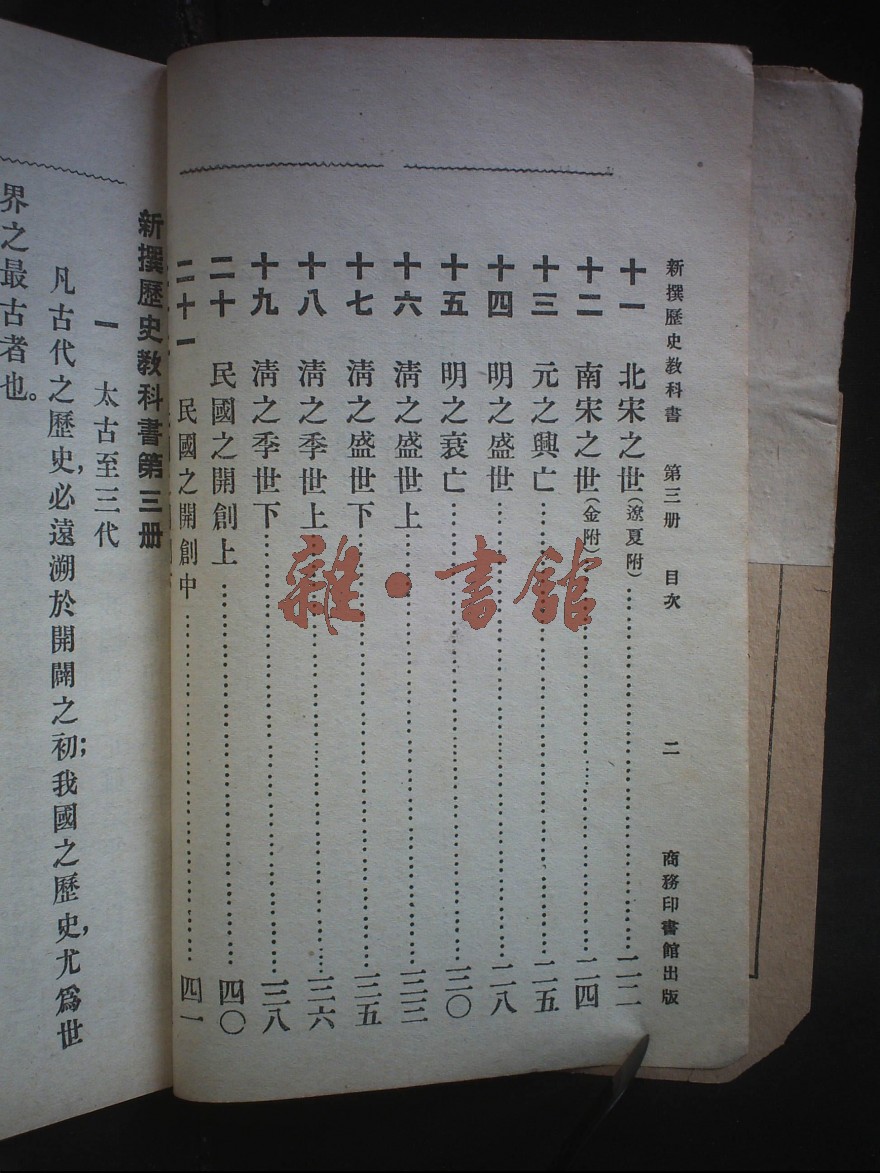 新撰歷史教科書　第三册　目次　二　商務印書館出版
十一　北宋之世(遼夏附)……二二
十二　南宋之世(金附)……二四
十三　元之興亡……二五
十四　明之盛世……二八
十五　明之衰亡……三〇
十六　淸之盛世上……三三
十七　淸之盛世下……三五
十八　淸之季世上……三六
十九　淸之季世下……三八
二十　民國之開創上……四〇
二十一　民國之開創中……四一
新撰歷史教科書第三册
一　太古至三代
凡古代之歷史,必遠溯於開闢之初;我國之歷史,尤爲世
界之最古者也。
雜·書館